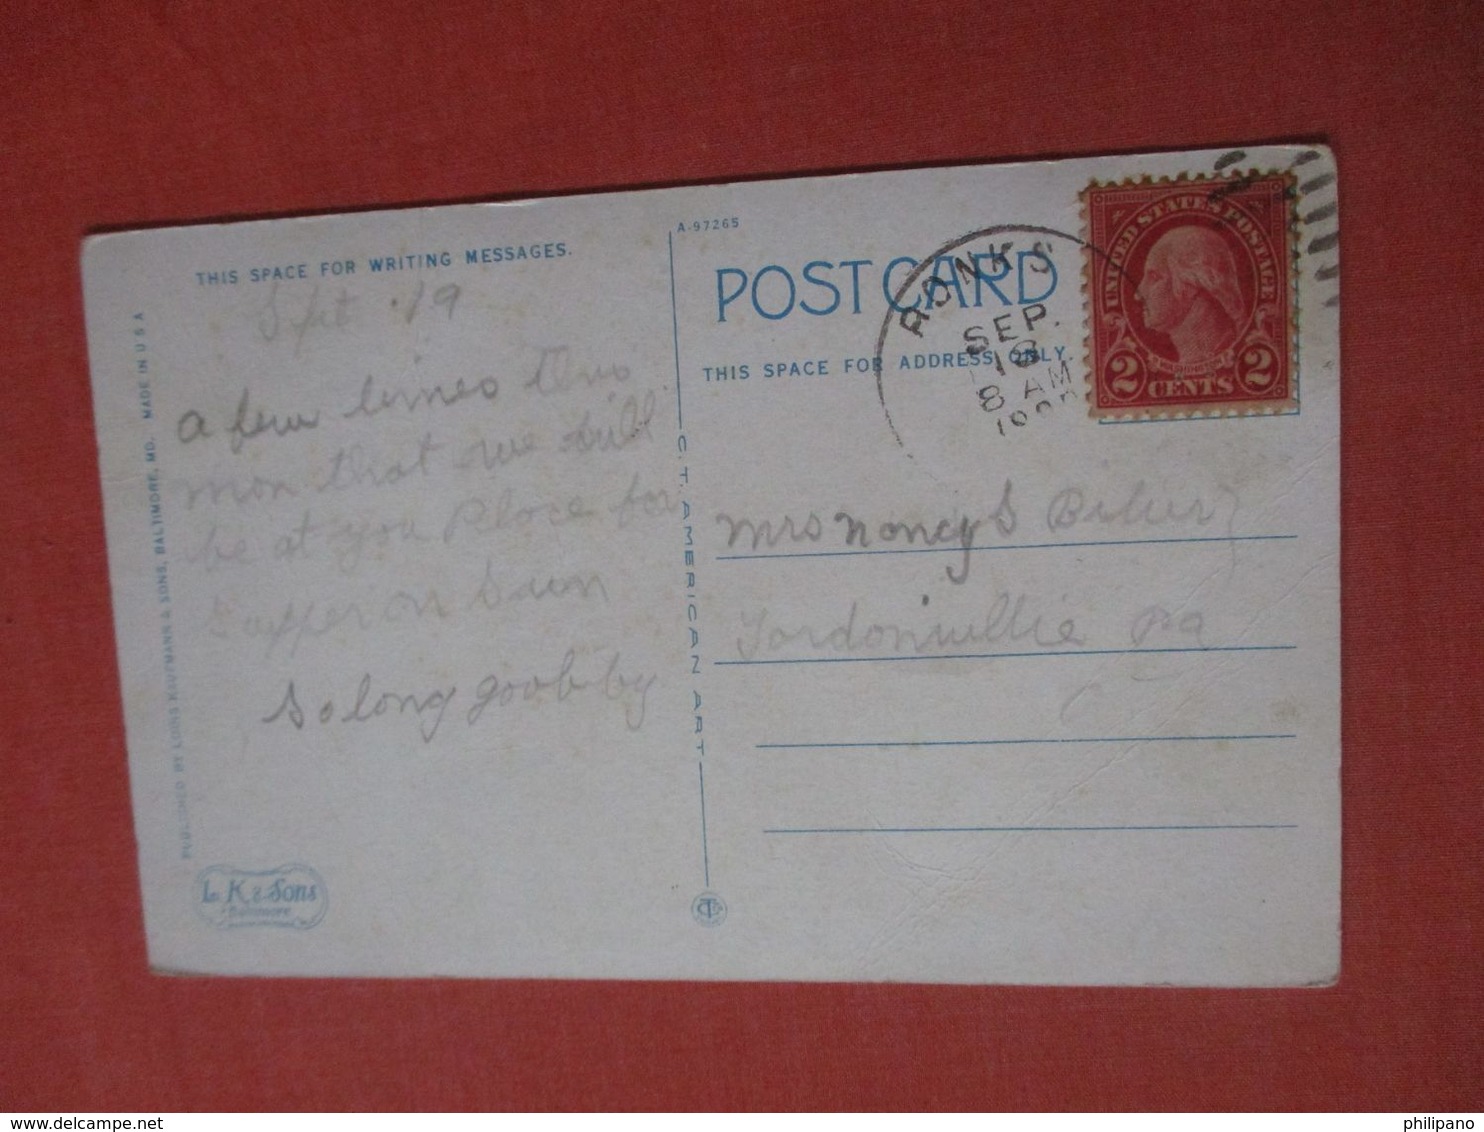 THIS SPACE FOR WRITING MESSAGES.
Spt. 19
a few lines this
mon that we will
be at you Place for
Supper on Sun
So long goob by
PUBLISHED BY LOUIS KAUFMANN & SONS, BALTIMORE, MD. MADE IN U S A
L. K. & Sons
Baltimore
A-97265
C. T. AMERICAN ART
POST CARD
THIS SPACE FOR ADDRESS ONLY.
RONKS
SEP.
8 AM
UNITED STATES POSTAGE
WASHINGTON
2 CENTS 2
Mrs Nancy S
Gordonvillie Pa
philipano
delcampe.net